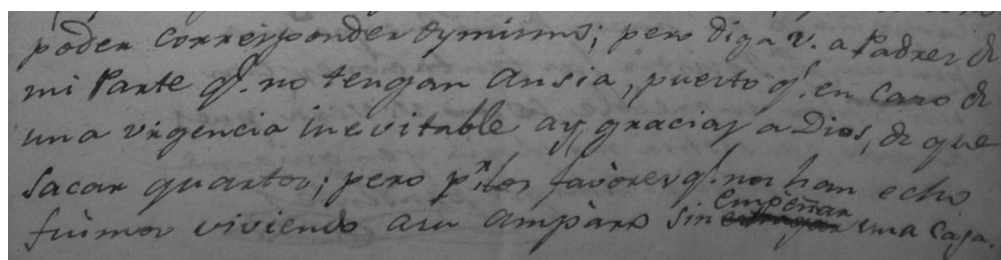 poder corresponder oy mismo; pero diga V. a Padres de
mi Parte q.e no tengan ansia, puesto q.e en caso de
una urgencia inevitable ay, gracias a Dios, de que
sacar quartos; pero p.r los favores q.e nos han echo
fuimos viviendo a su ampàro sin empeñar una caja.